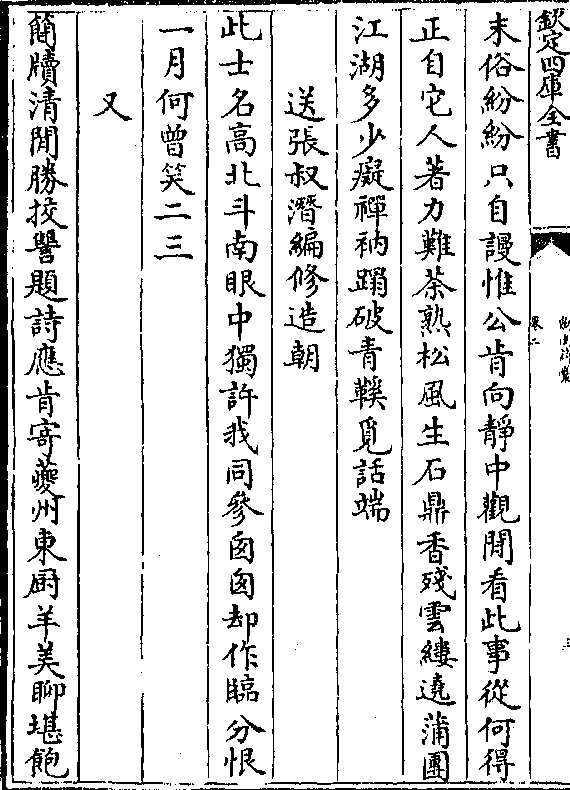 欽定四庫全書
卷二
三
末俗紛紛只自謾惟公肯向靜中觀閒看此事從何得
正自它人著力難茶熟松風生石鼎香殘雲縷遶蒲團
江湖多少癡禪衲蹋破青鞵覓話端
送張叔潛編修造朝
此士名高北斗南眼中獨許我同參囱囱却作臨分恨
一月何曾笑二三
又
簡牘清閒勝挍讐題詩應肯寄夔州東厨羊美聊堪飽